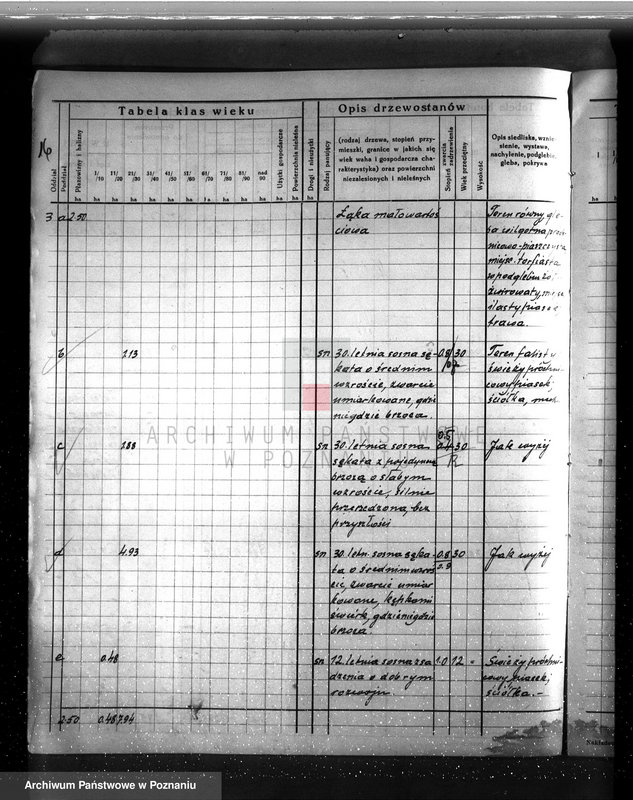 Tabela klas wieku
Opis drzewostanów
16
Oddział
Pododdział
Płazowiny i halizny
1/10 11/20 21/30 31/40 41/50 51/60 61/70 71/80 81/90 nad 90
Użytki gospodarcze
Powierzchnia nieleśna
Drogi i nieużytki
Rodzaj panujący
(rodzaj drzewa, stopień przy-
mieszki, granice w jakich się
wiek waha i gospodarcza cha-
rakterystyka) oraz powierzchni
niezalesionych i nieleśnych
Stopień zwarcia
zadrzewienie
Wiek przeciętny
Wysokość
Opis siedliska, wznie-
sienie, wystawa,
nachylenie, podglebie,
gleba, pokrywa
ha ha ha ha ha ha ha ha ha ha ha ha ha ha
3 a 2.50 Łąka małowartoś
ciowa
Teren równy, gle-
ba wilgotna
miejsc. torfiasta
trawa.
b 2.13 sn 30. letnia sosna sę- 0.8 30
kata o średnim
wzroście, zwarcie
umiarkowane, gdzie
niegdzie brzoza.
Teren falisty
świeży próchni-
cowy piasek,
ściółka, mech
c 1.88 sn 30. letnia sosna 0.5 0.4 30 Jak wyżej
sękata z pojedynczą
brzozą o słabym
wzroście, silnie
przerzedzona, bez
przyszłości
d 4.93 sn 30. letn. sosna sęka- 0.8 30 Jak wyżej
ta o średnim wzroś 0.9
cie, zwarcie umiar
kowane, kępkami
świerk, gdzieniegdzie
brzoza.
e 0.48 sn 12. letnia sosna z sa 1.0 12 Świeży próchni-
dzenia o dobrym cowy piasek
rozwoju ściółka.-
2.50 0.48 7.94
ARCHIWUM PAŃSTWOWE
W POZNANIU
Nakładem
Archiwum Państwowe w Poznaniu